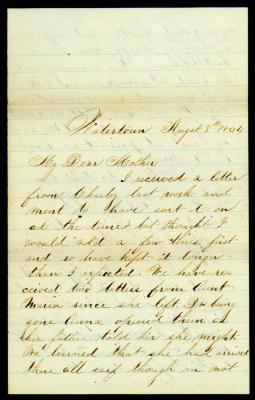 Watertown Augst 8th 1864
My Dear Mother
I received a letter
from Charly last week and
ment to have sent it on
at the time but thought I
would add a few lines first
and so have kept it longer
than I expected. We have re-
ceived two letters from Aunt
Maria since she left Dr being
gone Anna opened them as
her father told her she might.
We learned that she had arrived
there all saif though in not